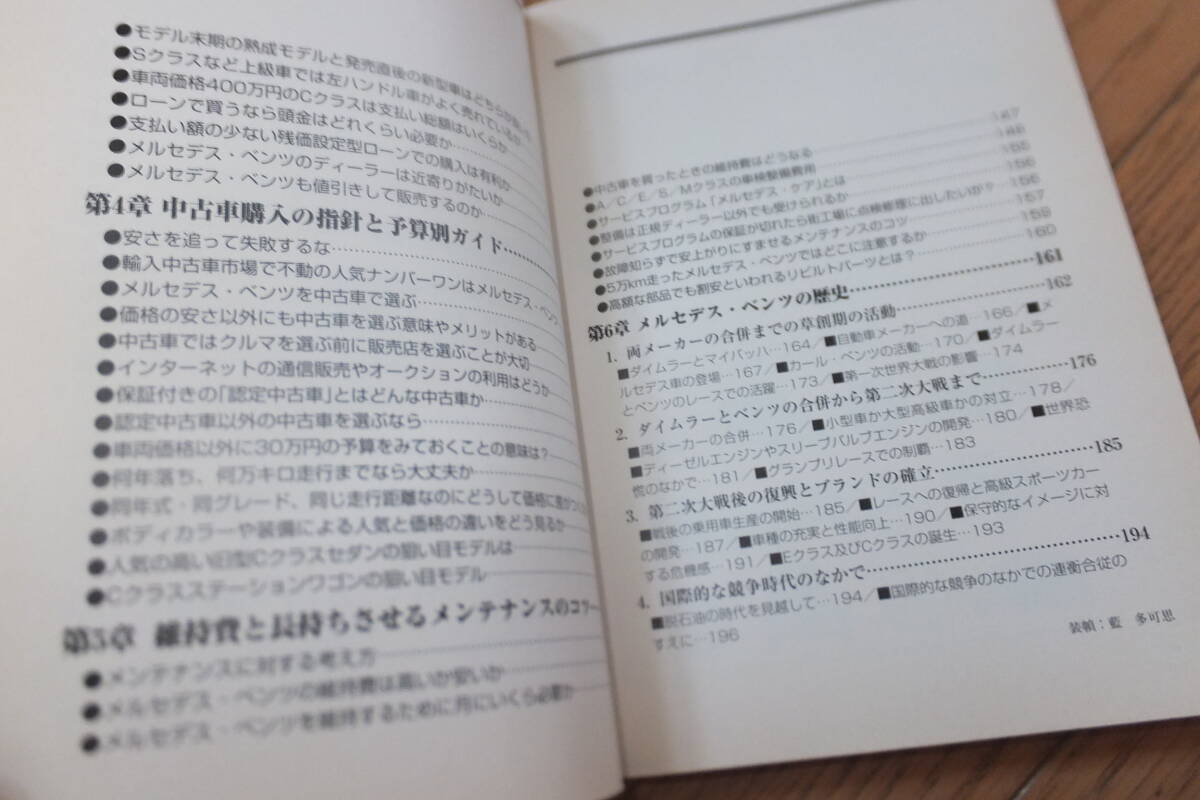 ●モデル末期の熟成モデルと発売直後の新型車はどちらが
●Sクラスなど上級車では左ハンドル車がよく売れているが
●車両価格400万円のCクラスは支払い総額はいくらか
●ローンで買うなら頭金はどれくらい必要か…
●支払い額の少ない残価設定型ローンでの購入は有利か
●メルセデス・ベンツのディーラーは近寄りがたいか
●メルセデス・ベンツも値引きして販売するのか
第4章 中古車購入の指針と予算別ガイド
●安さを追って失敗するな
●輸入中古車市場で不動の人気ナンバーワンはメルセデス・ベンツ
●メルセデス・ベンツを中古車で選ぶ
●価格の安さ以外にも中古車を選ぶ意味やメリットがある
●中古車ではクルマを選ぶ前に販売店を選ぶことが大切
●インターネットの通信販売やオークションの利用はどうか
●保証付きの「認定中古車」とはどんな中古車か
●認定中古車以外の中古車を選ぶなら
●車両価格以外に30万円の予算をみておくことの意味は?
●何年落ち、何万キロ走行までなら大丈夫か
●同年式・同グレード、同じ走行距離なのにどうして価格に差が
●ボディカラーや装備による人気と価格の違いをどう見るか
●人気の高い旧型Cクラスセダンの狙い目モデルは
●Cクラスステーションワゴンの狙い目モデル
第5章 維持費と長持ちさせるメンテナンスのコツ
●メンテナンスに対する考え方
●メルセデス・ベンツの維持費は高いか安いか
●メルセデス・ベンツを維持するために月にいくら必要か
●中古車を買ったときの維持費はどうなる 147
●A/C/E/S/Mクラスの車検整備費用
●サービスプログラム「メルセデス・ケア」とは 155
●整備は正規ディーラー以外でも受けられるか 156
●サービスプログラムの保証が切れたら街工場に点検修理に出したいが? 156
●故障知らずで安上がりにすませるメンテナンスのコツ 157
●5万km走ったメルセデス・ベンツではどこに注意するか 159
●高額な部品でも割安といわれるリビルトパーツとは? 160
第6章 メルセデス・ベンツの歴史 161
1. 両メーカーの合併までの草創期の活動 162
■ダイムラーとマイバッハ…164/■自動車メーカーへの道…166/■メ
ルセデス車の登場…167/■カール・ベンツの活動…170/■ダイムラー
とベンツのレースでの活躍…173/■第一次世界大戦の影響…174
2. ダイムラーとベンツの合併から第二次大戦まで 176
■両メーカーの合併…176/■小型車か大型高級車かの対立…178/
■ディーゼルエンジンやスリーブバルブエンジンの開発…180/■世界恐
慌のなかで…181/■グランプリレースでの制覇…183
3. 第二次大戦後の復興とブランドの確立 185
■戦後の乗用車生産の開始…185/■レースへの復帰と高級スポーツカー
の開発…187/■車種の充実と性能向上…190/■保守的なイメージに対
する危機感…191/■Eクラス及びCクラスの誕生…193
4. 国際的な競争時代のなかで 194
■脱石油の時代を見越して…194/■国際的な競争のなかでの連衡合従の
すえに…196
装幀:藍 多可思